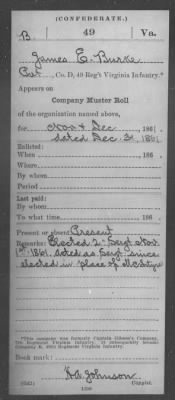 (CONFEDERATE.)
B | 49 | Va.
James E. Burke
Co. D, 49 Reg't Virginia Infantry.*
Appears on
Company Muster Roll
of the organization named above,
for Nov & Dec, 186 .
dated Dec 31, 1861
Enlisted:
When , 186 .
Where
By whom
Period
Last paid:
By whom
To what time , 186 .
Present or absent Present
Remarks: Elected 2d Sergt Nov.
1st 1861. Acted as Sergt since
elected in place of McIntyre
*This company was formerly Captain Gibson's Company,
Virginia Infantry. It subsequently became
Company 49th Regiment Virginia Infantry.
Book mark:
(642) Johnson
Copyist.